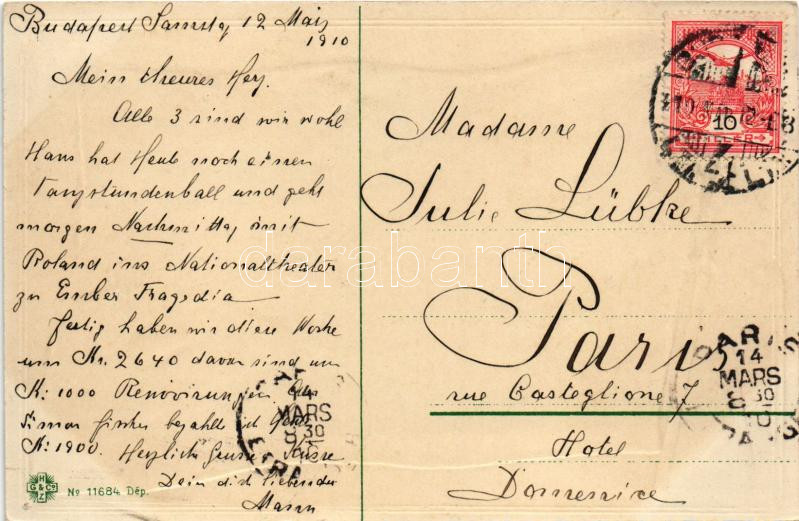 Budapest Samstag 12 März
1910
Mein theures Herz.
Alle 3 sind wir wohl
Hans hat Heute noch einen
Tanzstundenball und geht
morgen Nachmittag mit
Roland ins Nationaltheater
zu Ember Tragedia
Fertig haben wir diese Woche
um Kr. 2640 davon sind um
K: 1000 Renovirungen
Simon bezahlt
K: 1900. Herzliche Grüsse Küsse
Dein dich liebender
Mann
Madame
Julie Lübke
Paris
rue Casteglione 7
Hotel
Domenice
10
FILLÉR
14
MARS
8 30
PARIS
14
MARS
8 30
10
H
G & Co
Z
No 11684 Dép.
darabanth